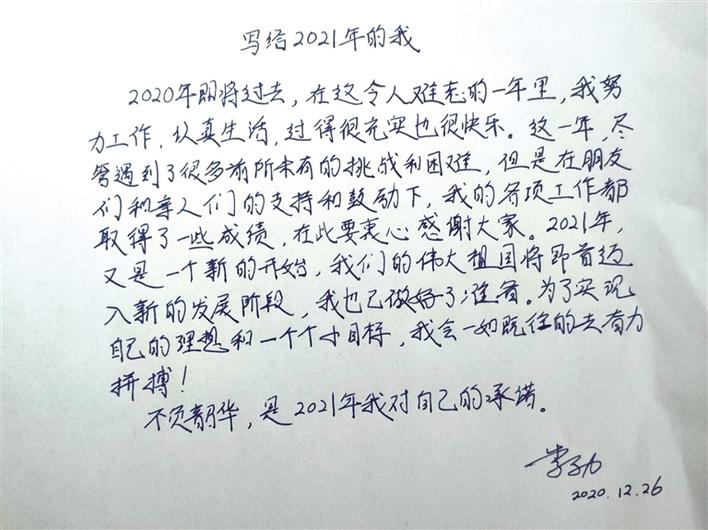 写给2021年的我
2020年即将过去，在这令人难忘的一年里，我努
力工作，认真生活，过得很充实也很快乐。这一年，尽
管遇到了很多前所未有的挑战和困难，但是在朋友
们和亲人们的支持和鼓励下，我的各项工作都
取得了一些成绩，在此要衷心感谢大家。2021年，
又是一个新的开始，我们的伟大祖国将昂首迈
入新的发展阶段，我也已做好了准备。为了实现
自己的理想和一个个小目标，我会一如既往的去奋力
拼搏！
不负韶华，是2021年我对自己的承诺。
2020.12.26